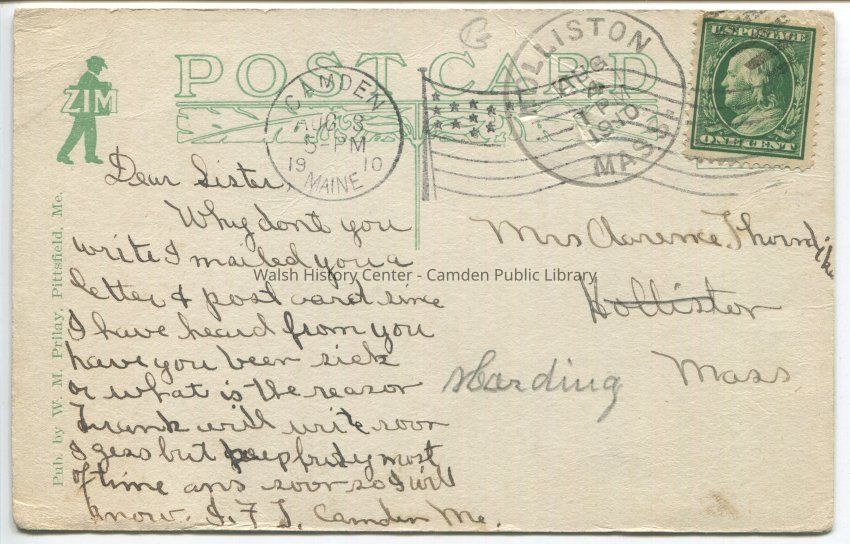 POST CARD
ZIM
CAMDEN
AUG 3
5-PM
19 10
MAINE
HOLLISTON
AUG
4
1 PM
1910
MASS
U.S. POSTAGE
ONE CENT
Pub. by W. M. Prilay, Pittsfield, Me.
Dear Sister,
Why dont you
write I mailed you a
letter & post card since
I have heard from you
have you been sick
or what is the reason
Frank will write soon
I gess but
most
of time ans soon so I will
know. I. F. T. Camden Me.
Mrs Clarence Thorndike
Holliston
Harding Mass
Walsh History Center - Camden Public Library